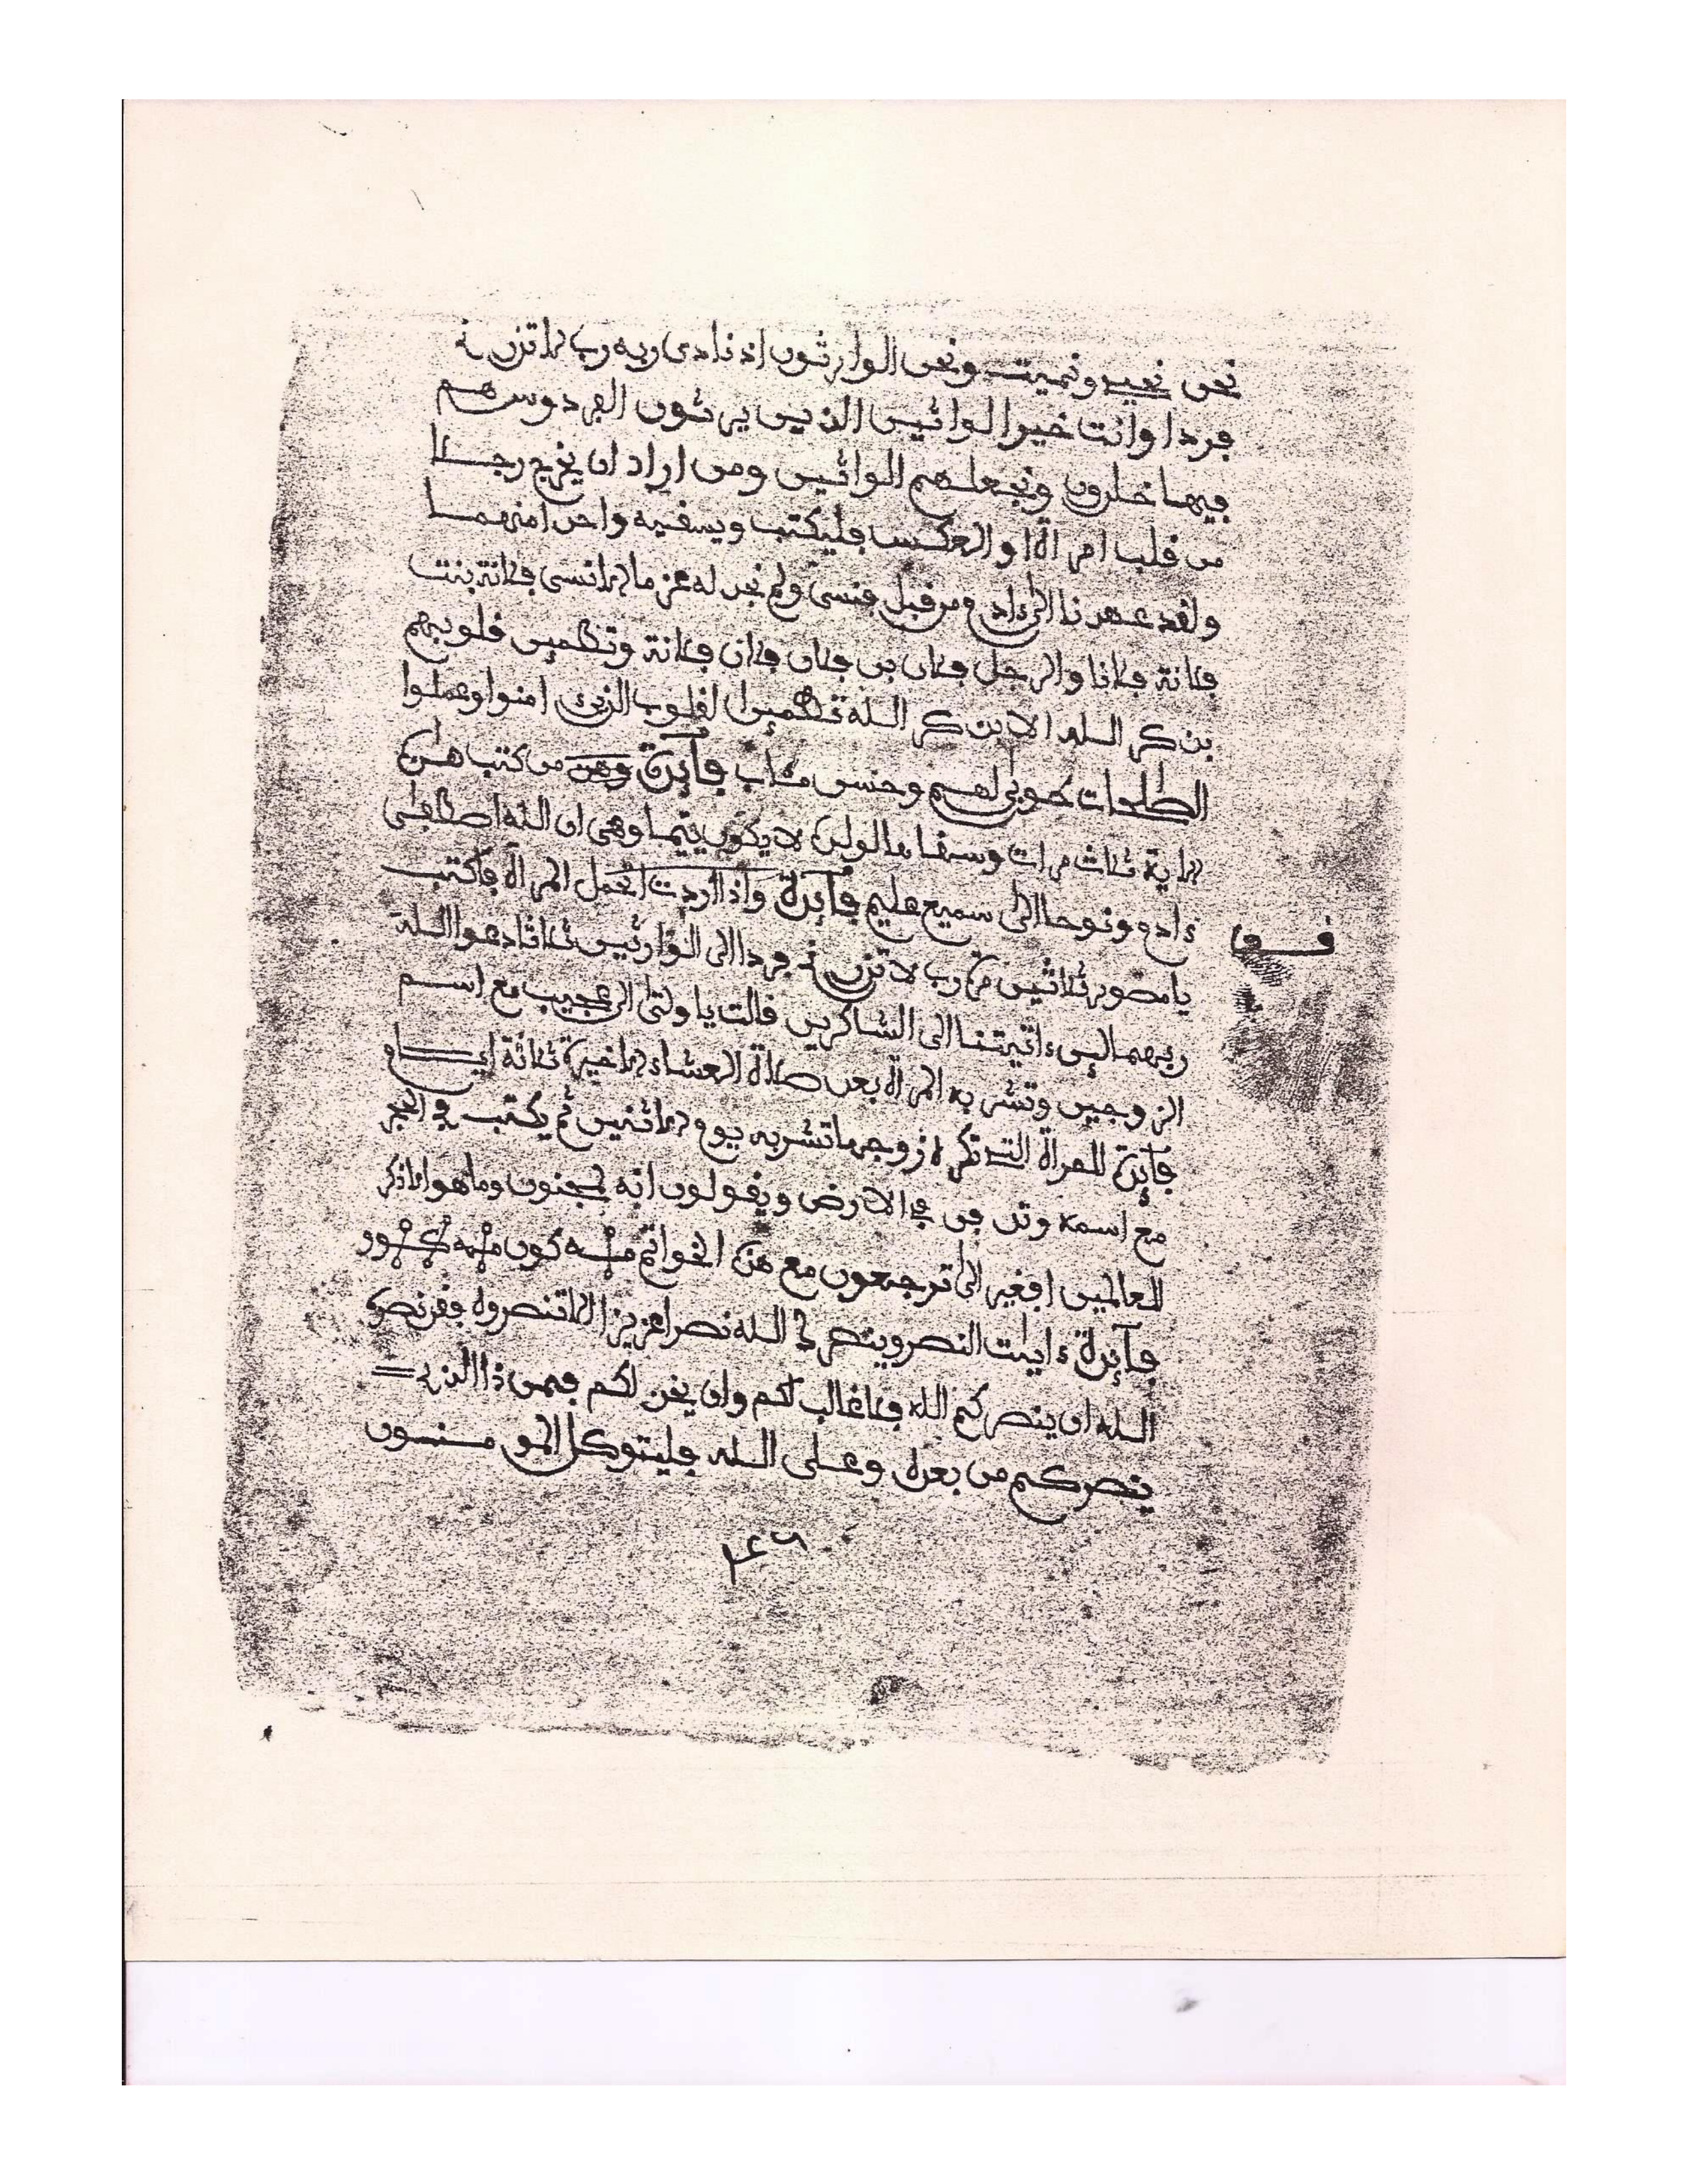 نحن نحيي ونميت ونحن الوارثون اذ نادى ربه رب لا تذرني
فردا وانت خير الوارثين الذين يرثون الفردوس هم
فيها خلدون ونجعلهم الوارثين ومن اراد ان يخرج رجلا
من قلب امراة او العكس فليكتب ويسقيه واحدا منهما
ولقد عهدنا الى ءادم من قبل فنسى ولم نجد له عزما لا تنسى فلانة بنت
فلانة فلانا والرجل فلان بن فلان فلان فلانة وتطمئن قلوبهم
بذكر الله الا بذكر الله تطمئن القلوب الذين امنوا وعملوا
الصلحات طوبى لهم وحسن مئاب فآئدة من كتب هذه
الاية ثلاث مرات وسقاها لولده لا يكون يتيما وهي ان الله اصطفى
ءادم ونوحا الى سميع عليم فآئدة واذا اردت لحمل المراة فاكتب
قوا
يا مصور ثلاثين مرة رب لا تذرني فردا الى الوارثين ثلاثا دعوا الله
ربهما لئن ءاتيتنا الى الشاكرين قالت يا ولتى الى عجيب مع اسم
الزوجين وتشربه المراة بعد صلاة العشاء الاخيرة ثلاثة ايام
فآئدة للمراة التي تكره زوجها تشربه يوم الاثنين ثم يكتب في الحجر
مع اسمه وتدفن في الارض ويقولون انه لمجنون وما هو الا ذكر
للعالمين افغير الى ترجعون مع هذه الخواتم
فآئدة ءايات النصر وينصرك الله نصرا عزيزا الا تنصروه فقد نصره
الله ان ينصركم الله فلا غالب لكم وان يخذلكم فمن ذا الذي
ينصركم من بعده وعلى الله فليتوكل المومنون